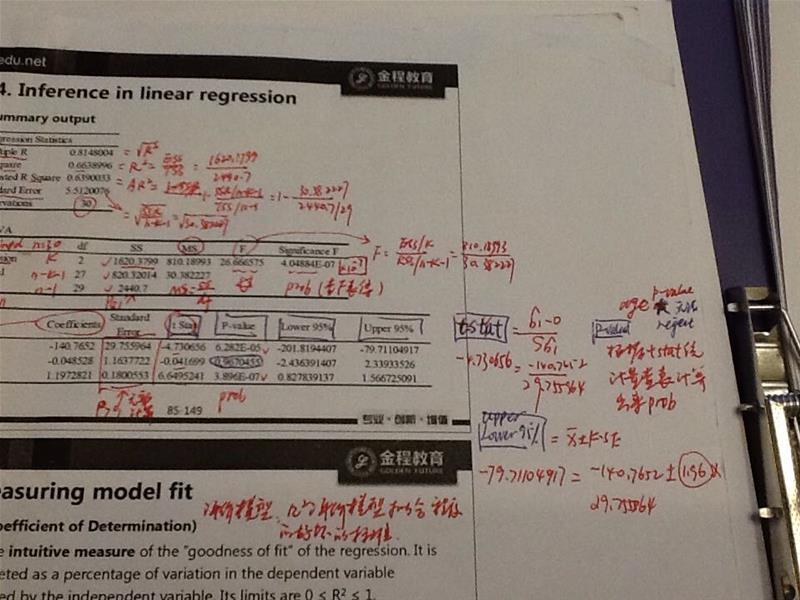 edu.net
金程教育
GOLDEN FUTURE
4. Inference in linear regression
ummary output
gression Statistics
tiple R 0.8148004 = √R²
quare 0.6638996 = R² = ESS/TSS = 1620.3799/2440.7
sted R Square 0.6390033 = AR² = 1- RSS/n-k-1 / TSS/n-1 = 1- 30.382227/2440.7/29
dard Error 5.5120076 = √RSS/n-k-1 = √30.382227
vations 30
VA
n=30 df SS MS F Significance F
sion K 2 1620.3799 810.18993 26.666575 4.04884E-07
n-k-1 27 820.32014 30.382227
n-1 29 2440.7 MS= SS/df prob
F = ESS/K / RSS/n-k-1 = 810.18993/30.382227
Coefficients Standard Error t Stat P-value Lower 95% Upper 95%
-140.7652 29.755964 -4.730656 6.282E-05 -201.8194407 -79.71104917
-0.048528 1.1637722 -0.041699 0.9670455 -2.436391407 2.33933526
1.1972821 0.1800553 6.6495241 3.896E-07 0.827839137 1.566725091
prob
85-149
专业·创新·增值
t-stat = b̂1-0 / Sb̂1
-4.730656 = -140.7652/29.755964
p-value
reject
p-value
根据t-stat统
计量查表计算
出来prob
upper
Lower 95% = x̄±k·SE
-79.71104917 = -140.7652 ± 1.96 ×
29.755964
金程教育
GOLDEN FUTURE
easuring model fit
oefficient of Determination)
e intuitive measure of the "goodness of fit" of the regression. It is
eted as a percentage of variation in the dependent variable
ed by the independent variable. Its limits are 0 ≤ R² ≤ 1.